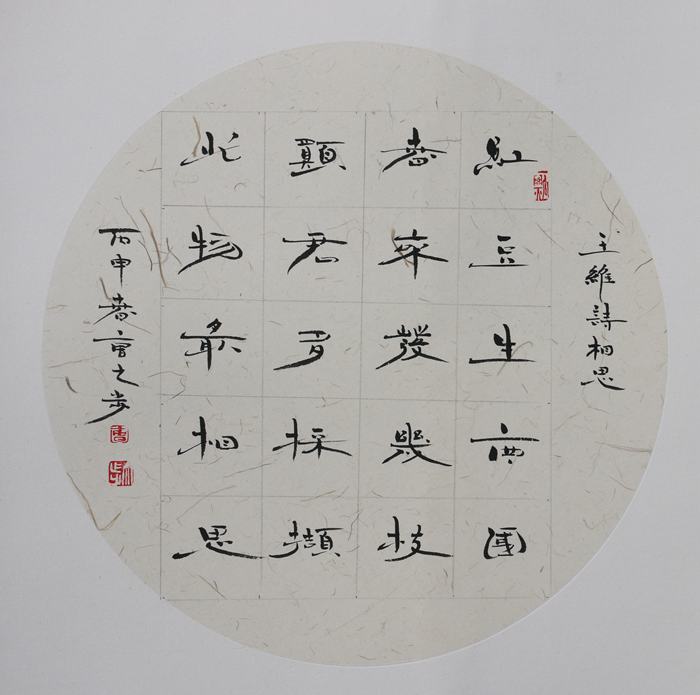 王維詩相思
紅豆生南國
春來發幾枝
願君多採擷
此物最相思
丙申春之步